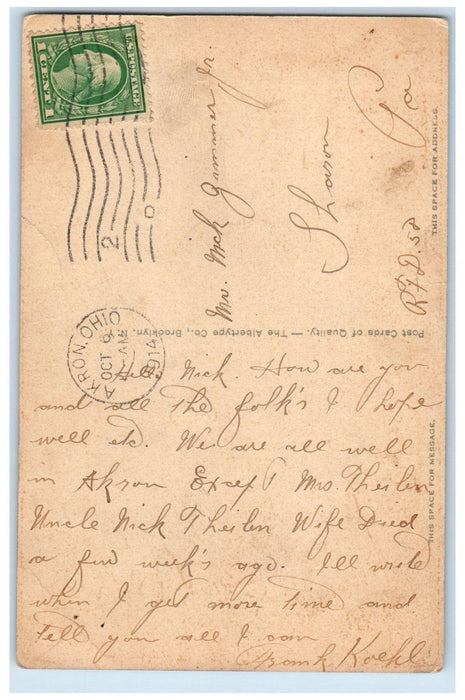 U.S. POSTAGE
1 CENT 1
2
D
AKRON, OHIO
OCT 9
AM
1914
Mr. Nick Grimmer Jr.
Sharon Pa
R.F.D. 58
THIS SPACE FOR ADDRESS.
Post Cards of Quality. — The Albertype Co., Brooklyn, N.Y.
THIS SPACE FOR MESSAGE.
Hello Nick. How are you
and all The folk's I hope
well etc. We are all well
in Akron Except Mrs. Theilen
Uncle Nick Theilen Wife Died
a few week's ago. I'll write
when I get more time and
Tell you all I can
Frank Koehl